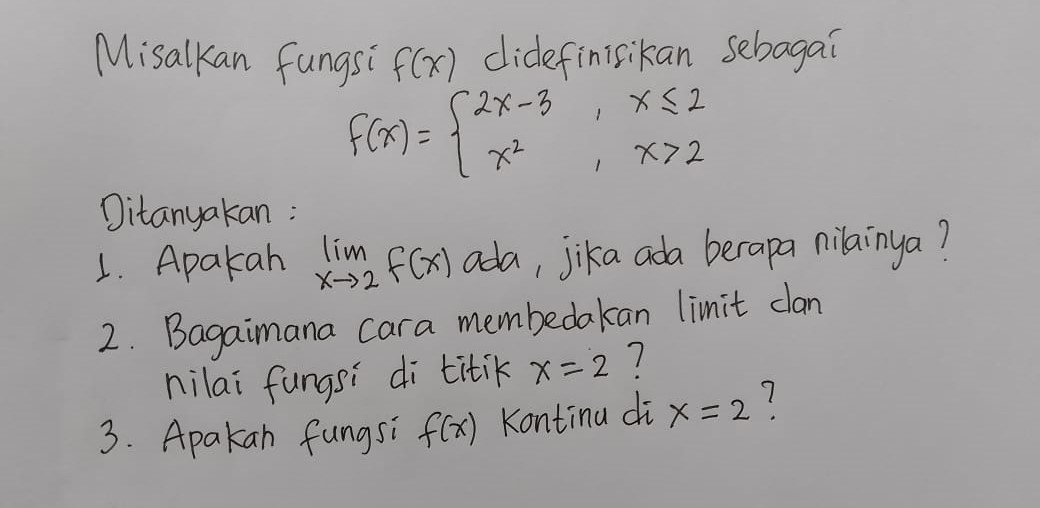 Misalkan fungsi f(x) didefinisikan sebagai
f(x) = { 2x-3 , x ≤ 2
x² , x > 2
Ditanyakan :
1. Apakah lim x→2 f(x) ada, jika ada berapa nilainya ?
2. Bagaimana cara membedakan limit dan
nilai fungsi di titik x = 2 ?
3. Apakah fungsi f(x) kontinu di x = 2 ?